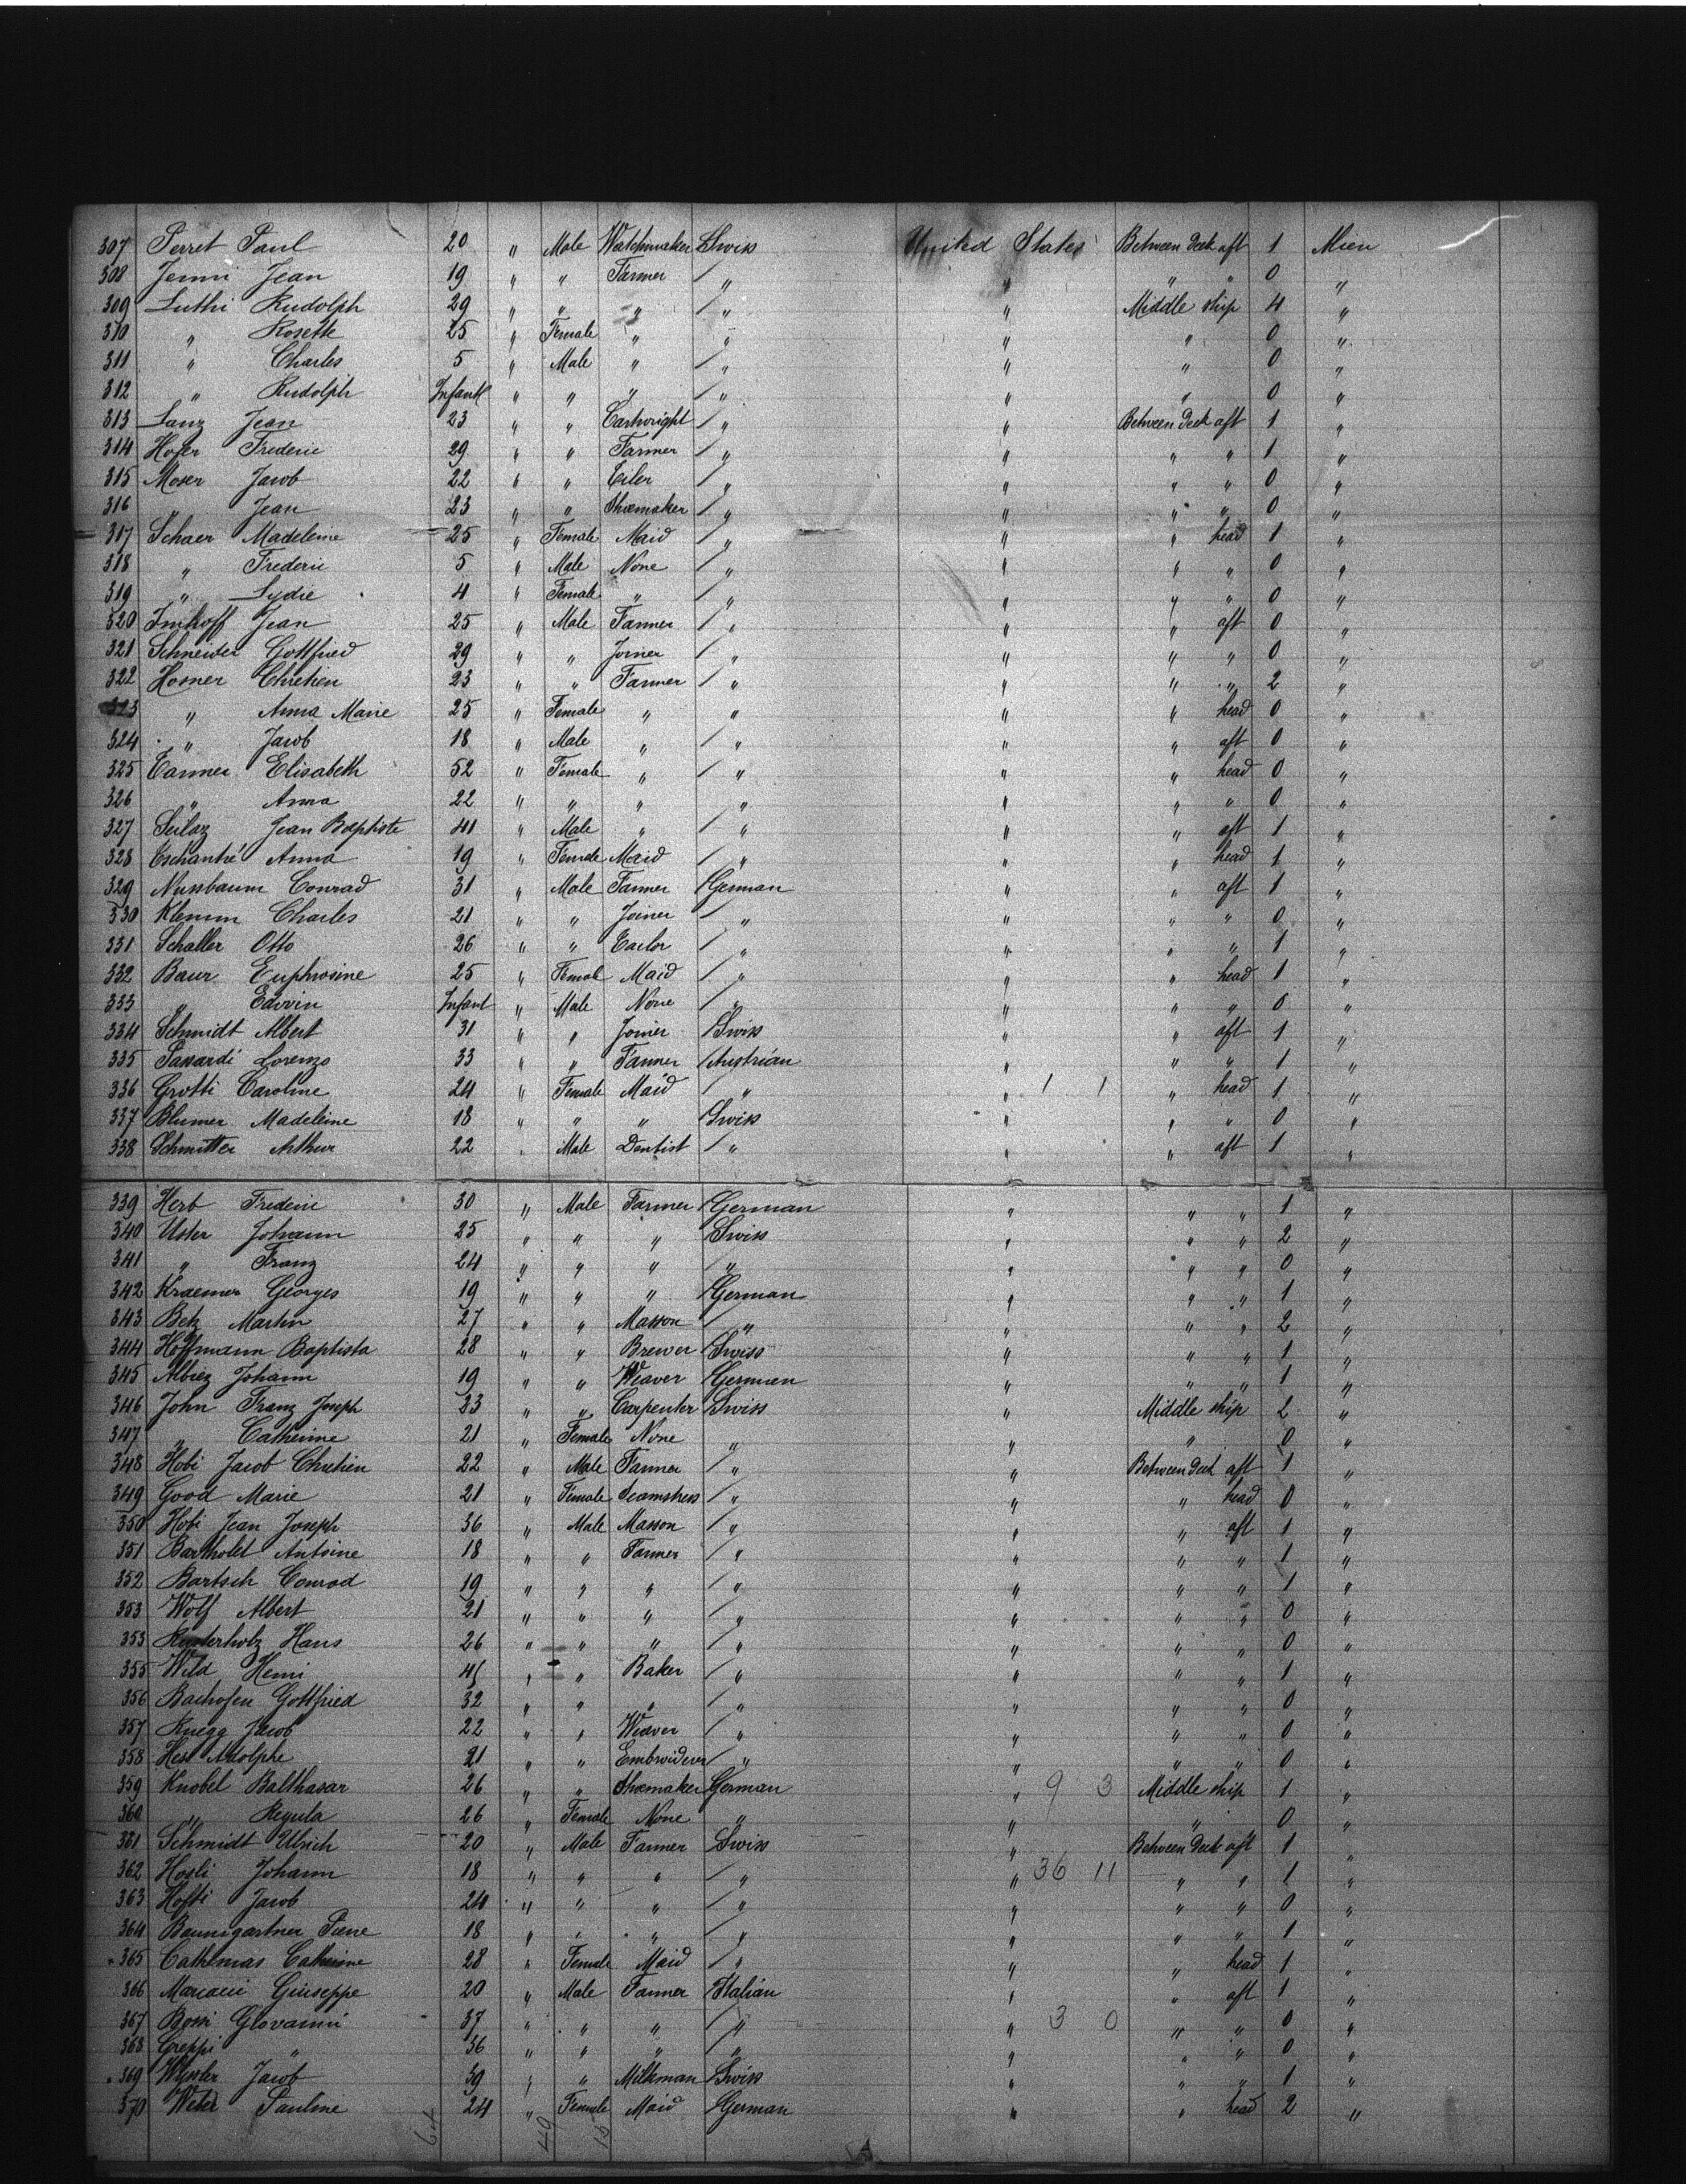 307 Perret Paul 20 " Male Watchmaker Swiss United States Between Deck aft 1 Mien
308 Jenni Jean 19 " " Farmer / " " " " 0 "
309 Luthi Rudolph 29 " " " / " " Middle ship 4 "
310 " Rosette 25 " Female " " " " 0 "
311 " Charles 5 " Male " / " " " 0 "
312 " Rudolph Infant " " " / " " " 0 "
313 Lanz Jean 23 " " Cartwright / " " Between Deck aft 1 "
314 Hofer Frederic 29 " " Farmer / " " " " 1 "
315 Moser Jacob 22 " " Tiler / " " " " 0 "
316 " Jean 23 " " Shoemaker / " " " " 0 "
317 Schaer Madeleine 25 " Female Maid / " " " head 1 "
318 " Frederic 5 " Male None / " " " " 0 "
319 " Lydie 4 " Female " / " " " " 0 "
320 Imhoff Jean 25 " Male Farmer / " " " aft 0 "
321 Schneider Gottfried 29 " " Joiner / " " " " 0 "
322 Hosner Chretien 23 " " Farmer / " " " " 2 "
323 " Anna Marie 25 " Female " " " " head 0 "
324 " Jacob 18 " Male " / " " " aft 0 "
325 Tanner Elisabeth 52 " Female " / " " " head 0 "
326 " Anna 22 " " " " " " " 0 "
327 Seilaz Jean Baptiste 41 " Male " / " " " aft 1 "
328 Tschantré Anna 19 " Female Maid / " " " head 1 "
329 Nussbaum Conrad 31 " Male Farmer / German " " aft 1 "
330 Klemm Charles 21 " " Joiner / " " " " 0 "
331 Schaller Otto 26 " " Tailor / " " " " 1 "
332 Baur Euphrosine 25 " Female Maid / " " " head 1 "
333 " Edwin Infant " Male None / " " " " 0 "
334 Schmidt Albert 31 " " Joiner / Swiss " " aft 1 "
335 Passardi Lorenzo 33 " " Farmer / Austrian " " " 1 "
336 Grotti Caroline 24 " Female Maid / " " 1 1 " head 1 "
337 Blumer Madeleine 18 " " " / Swiss " " " 0 "
338 Schmitter Arthur 22 " Male Dentist / " " " aft 1 "
339 Herb Frederic 30 " Male Farmer / German " " " 1 "
340 Uster Johann 25 " " " Swiss " " " 2 "
341 " Franz 24 " " " " " " " 0 "
342 Kraemer Georges 19 " " " / German " " " 1 "
343 Betz Martin 27 " " Masson / " " " " 2 "
344 Hoffmann Baptista 28 " " Brewer / Swiss " " " 1 "
345 Albiez Johann 19 " " Weaver / German " " " 1 "
346 John Franz Joseph 23 " " Carpenter / Swiss " Middle ship 2 "
347 " Catherine 21 " Female None " " " 0 "
348 Hobi Jacob Chretien 22 " Male Farmer / " " Between Deck aft 1 "
349 Good Marie 21 " Female Seamstress / " " " head 0 "
350 Hobi Jean Joseph 36 " Male Masson / " " " aft 1 "
351 Bartholet Antoine 18 " " Farmer / " " " " 1 "
352 Bartsch Conrad 19 " " " / " " " " 1 "
353 Wolf Albert 21 " " " / " " " " 0 "
353 Kusterholz Hans 26 " " " / " " " " 0 "
355 Wild Henri " " Baker / " " " 1 "
356 Bachofen Gottfried 32 " " " / " " " " 0 "
357 Ruegg Jacob 22 " " Weaver / " " " " 0 "
358 Hess Adolphe 21 " " Embroiderer / " " " " 0 "
359 Knobel Balthasar 26 " " Shoemaker German " 9 3 Middle ship 1 "
360 " Regula 26 " Female None " " " 0 "
361 Schmidt Ulrich 20 " Male Farmer Swiss " Between Deck aft 1 "
362 Hosli Johann 18 " " " / " " 36 11 " " 1 "
363 Hofti Jacob 24 " " " / " " " " 0 "
364 Baumgartner Pierre 18 " " " / " " " " 1 "
365 Cathomas Catherine 28 " Female Maid / " " " head 1 "
366 Giuseppe 20 " Male Farmer / Italian " " aft 1 "
367 Bossi Giovanni 37 " " " / " " 3 0 " " 0 "
368 Greppi " 36 " " " / " " " " 0 "
369 Wyssler Jacob 39 " " Milkman / Swiss " " " 1 "
370 Weber Pauline 24 " Female Maid / German " " head 2 "
64 49 15